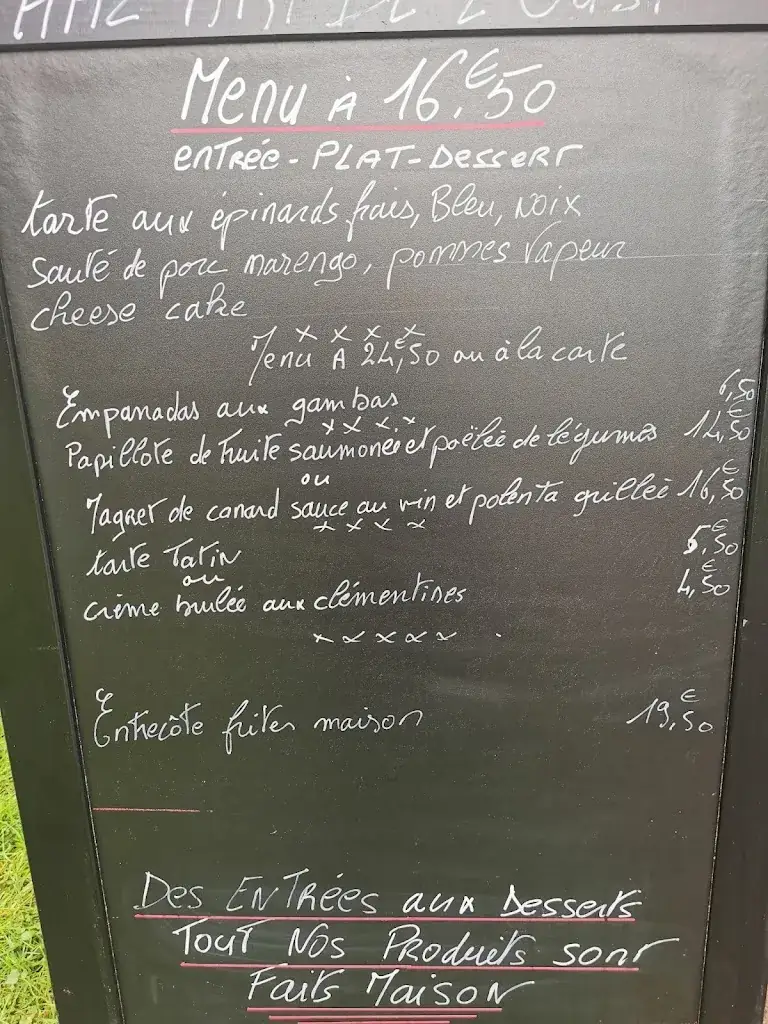 Menu à 16,€50
ENTRÉE - PLAT - DESSERT
tarte aux épinards frais, Bleu, NOIX
Sauté de porc marengo, pommes vapeur
cheese cake
x x x x
Menu A 24,€50 ou à la carte
Empanadas aux gambas 6,50
x x x x
Papillote de truite saumonée et poêlée de légumes 14,€50
ou
Magret de canard sauce au vin et polenta grillée 16,€50
x x x x
tarte Tatin 5,€50
ou
crème brulée aux clémentines 4,€50
x x x x x
Entrecôte frites maison 19,€50
Des ENTRÉES aux Desserts
Tout Nos Produits sont
Faits Maison